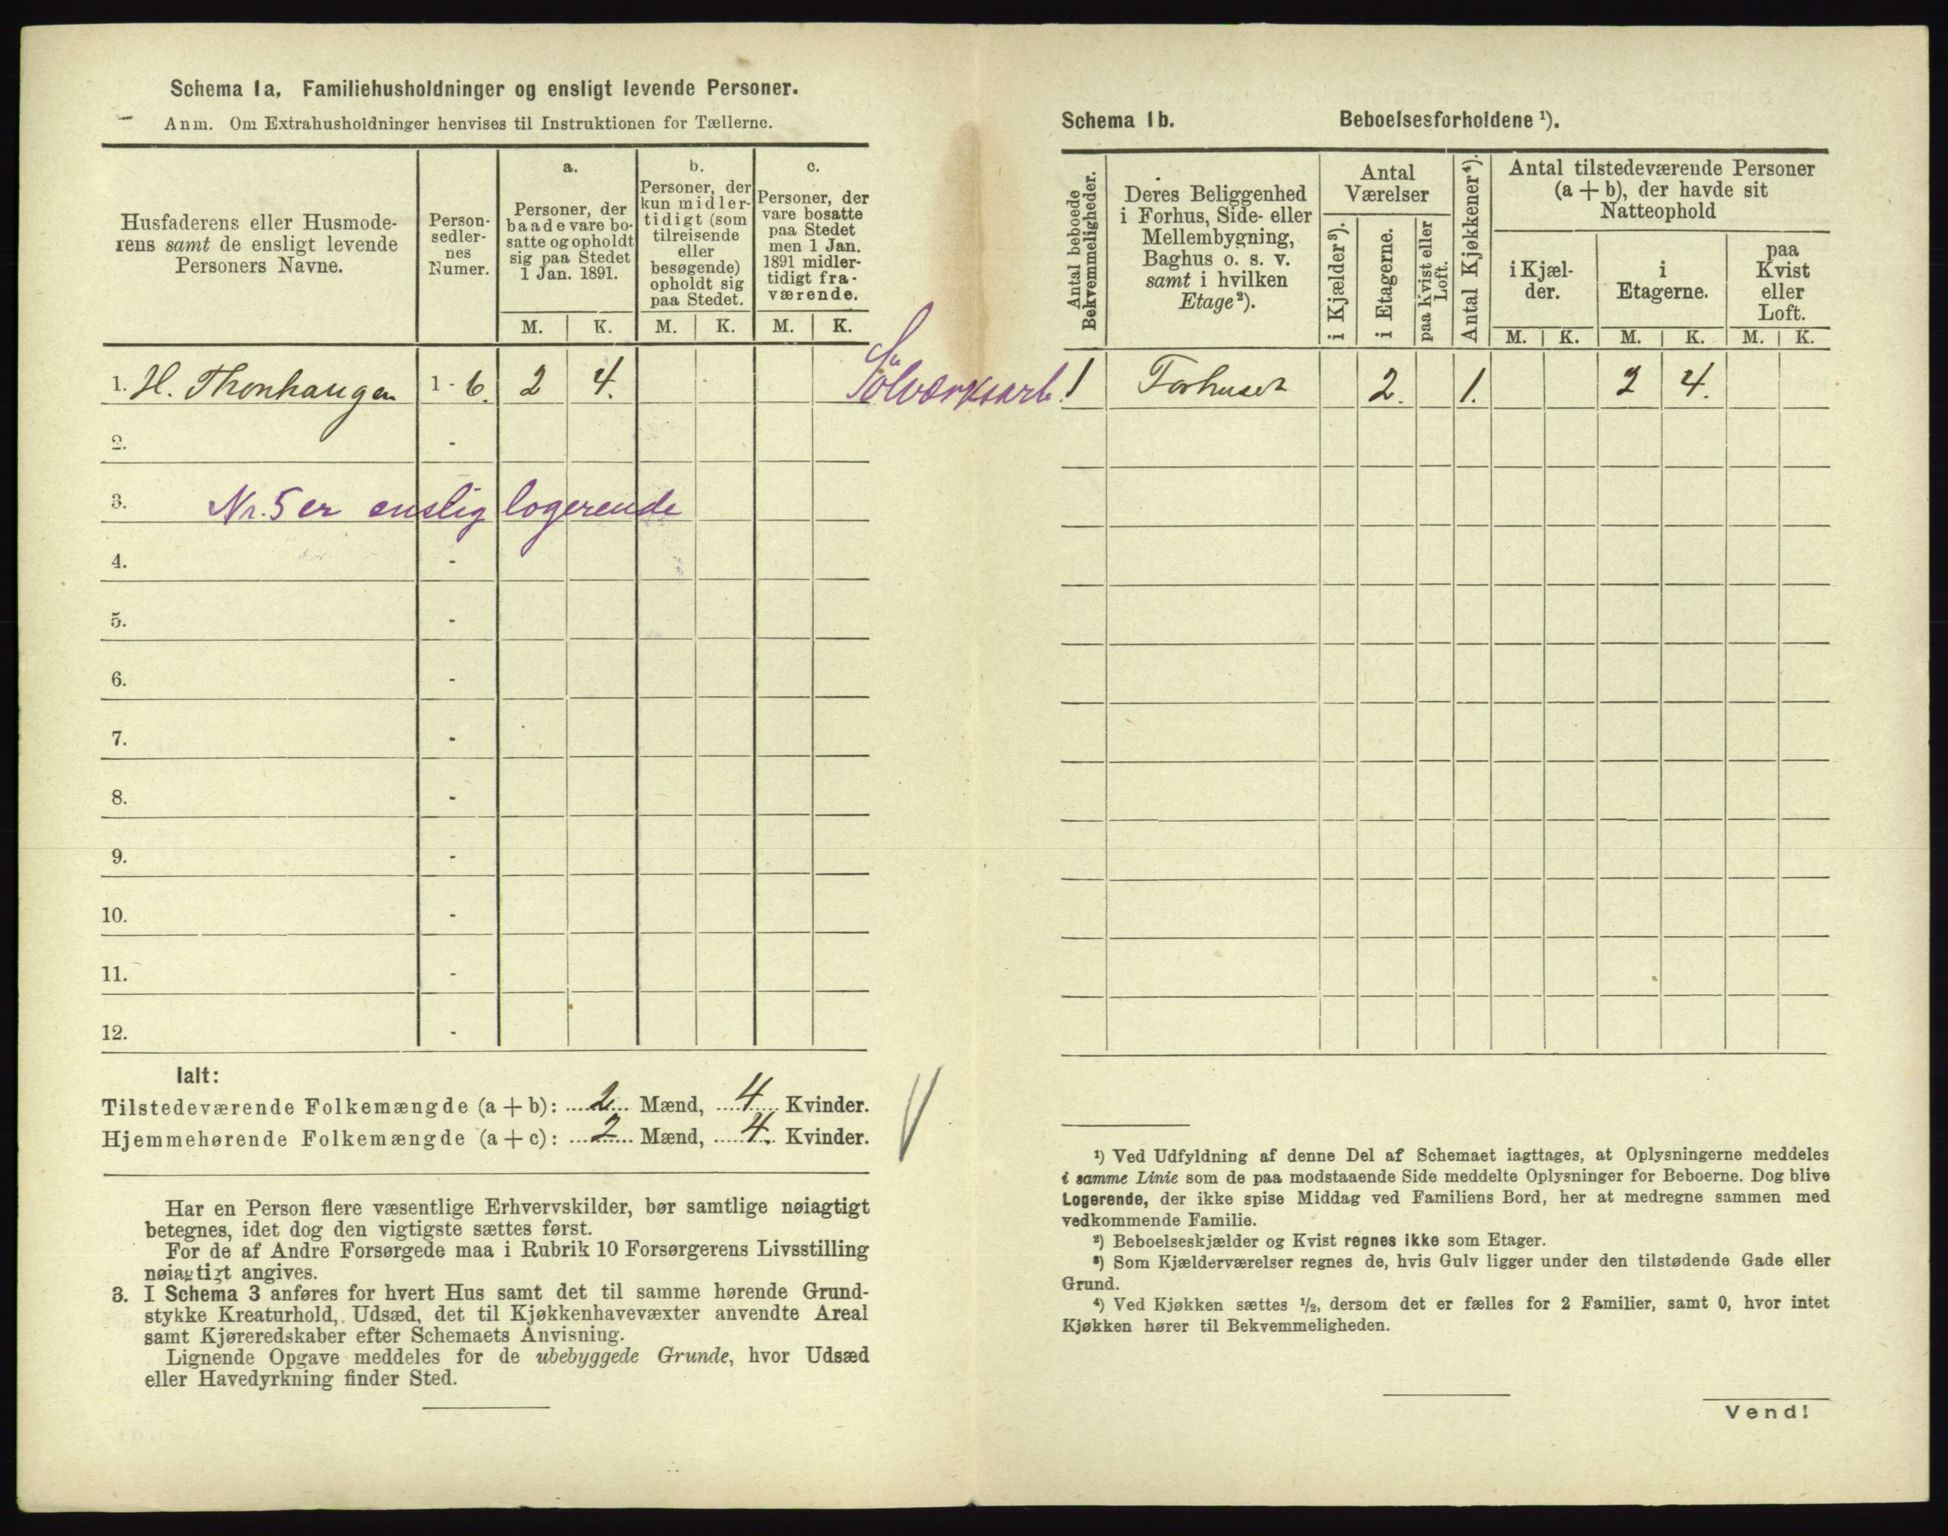 Schema 1a. Familiehusholdninger og ensligt levende Personer.
Anm. Om Extrahusholdninger henvises til Instruktionen for Tællerne.
Husfaderens eller Husmode-
rens samt de ensligt levende
Personers Navne.
Person-
sedler-
nes
Numer.
a.
Personer, der
baade vare bo-
satte og opholdt
sig paa Stedet
1 Jan. 1891.
b.
Personer, der
kun midler-
tidigt (som
tilreisende
eller
besøgende)
opholdt sig
paa Stedet.
c.
Personer, der
vare bosatte
paa Stedet
men 1 Jan.
1891 midler-
tidigt fra-
værende.
M. K. M. K. M. K.
1. H. Thonhaugen 1 - 6. 2 4.
2. -
3. Nr. 5 er enslig logerende
4. -
5. -
6. -
7. -
8. -
9. -
10. -
11. -
12. -
Ialt:
Tilstedeværende Folkemængde (a + b): 2 Mænd, 4 Kvinder.
Hjemmehørende Folkemængde (a + c): 2 Mænd, 4. Kvinder.
Har en Person flere væsentlige Erhvervskilder, bør samtlige nøiagtigt
betegnes, idet dog den vigtigste sættes først.
For de af Andre Forsørgede maa i Rubrik 10 Forsørgerens Livsstilling
nøiagtigt angives.
3. I Schema 3 anføres for hvert Hus samt det til samme hørende Grund-
stykke Kreaturhold, Udsæd, det til Kjøkkenhavevæxter anvendte Areal
samt Kjøreredskaber efter Schemaets Anvisning.
Lignende Opgave meddeles for de ubebyggede Grunde, hvor Udsæd
eller Havedyrkning finder Sted.
Schema 1b. Beboelsesforholdene ¹).
Antal beboede
Bekvemmeligheder.
Deres Beliggenhed
i Forhus, Side- eller
Mellembygning,
Baghus o. s. v.
samt i hvilken
Etage²).
Antal
Værelser
i Kjælder³).
i Etagerne.
paa Kvist eller
Loft.
Antal Kjøkkener⁴).
Antal tilstedeværende Personer
(a + b), der havde sit
Natteophold
i Kjæl-
der.
i
Etagerne.
paa
Kvist
eller
Loft.
M. K. M. K. M. K.
Sølværksarb. 1 Forhuset 2. 1. 2 4.
¹) Ved Udfyldning af denne Del af Schemaet iagttages, at Oplysningerne meddeles
i samme Linie som de paa modstaaende Side meddelte Oplysninger for Beboerne. Dog blive
Logerende, der ikke spise Middag ved Familiens Bord, her at medregne sammen med
vedkommende Familie.
²) Beboelseskjælder og Kvist regnes ikke som Etager.
³) Som Kjælderværelser regnes de, hvis Gulv ligger under den tilstødende Gade eller
Grund.
⁴) Ved Kjøkken sættes ½, dersom det er fælles for 2 Familier, samt 0, hvor intet
Kjøkken hører til Bekvemmeligheden.
Vend!